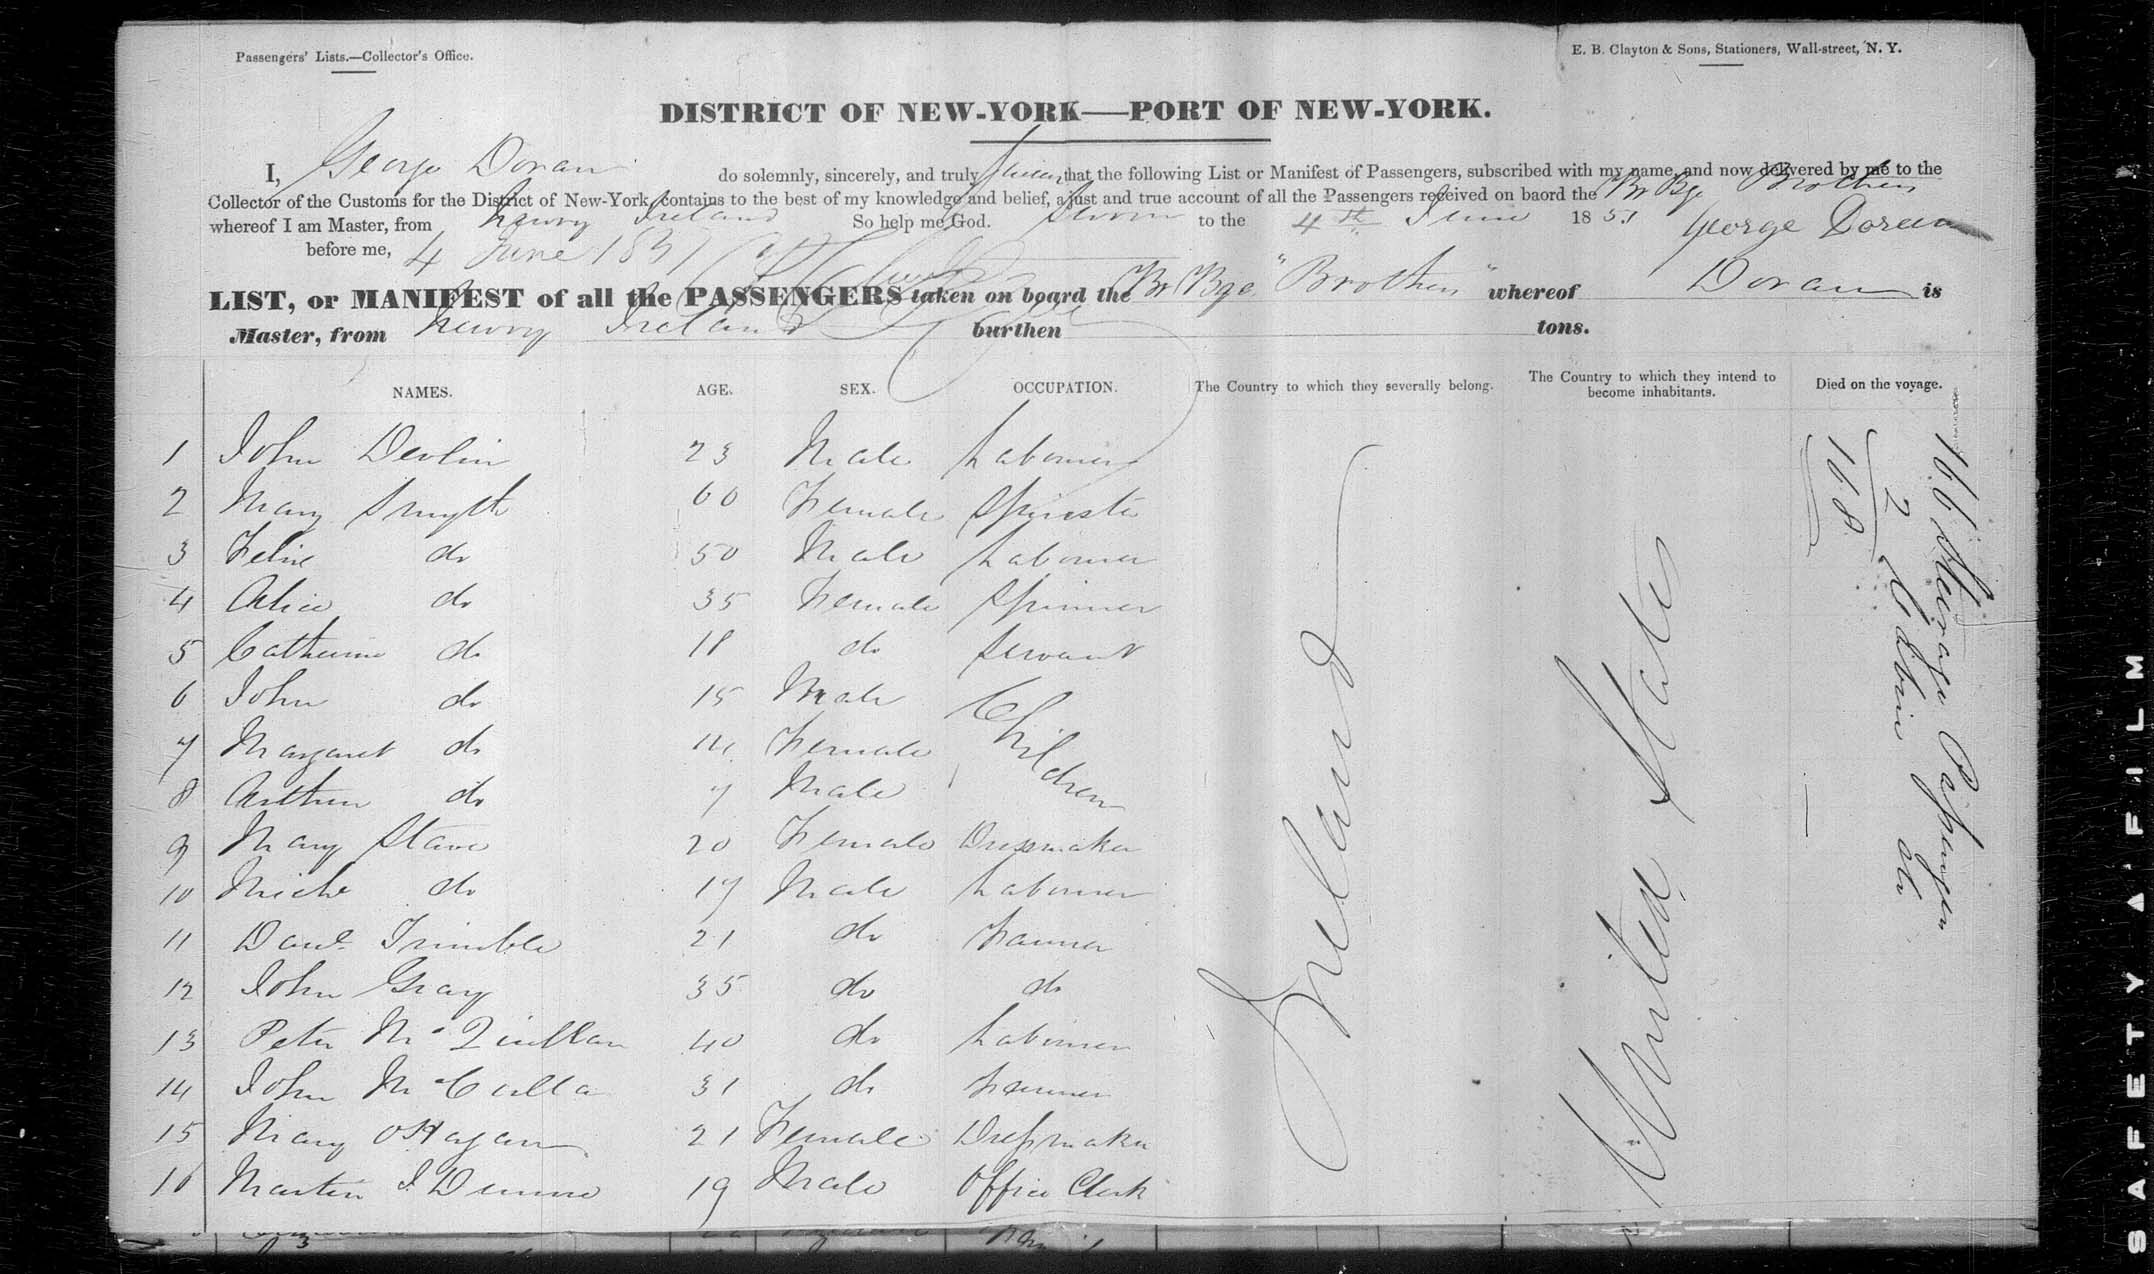 Passengers' Lists.—Collector's Office.
E. B. Clayton & Sons, Stationers, Wall-street, N. Y.
DISTRICT OF NEW-YORK—PORT OF NEW-YORK.
I, George Doran do solemnly, sincerely, and truly Swear that the following List or Manifest of Passengers, subscribed with my name, and now delivered by me to the
Collector of the Customs for the District of New-York, contains to the best of my knowledge and belief, a just and true account of all the Passengers received on baord the Br Bge Brothers
whereof I am Master, from Newry Ireland So help me God. Sworn to the 4th June 1851 George Doran
before me, 4 June 1851
LIST, or MANIFEST of all the PASSENGERS taken on board the Br Bge "Brothers" whereof Doran is
Master, from Newry Ireland burthen tons.
NAMES. AGE. SEX. OCCUPATION. The Country to which they severally belong. The Country to which they intend to become inhabitants. Died on the voyage.
1 John Devlin 23 Male Labourer
2 Mary Smyth 60 Female Spinster
3 Felix do 50 Male Labourer
4 Alice do 35 Female Spinner
5 Catherine do 18 do Servant
6 John do 15 Male Children
7 Margaret do 14 Female
8 Arthur do 7 Male
9 Mary 20 Female Dressmaker
10 do 17 Male Labourer
11 Danl Trimble 21 do Farmer
12 John Gray 35 do do
13 Peter McQuillan 40 do Labourer
14 John McCulla 31 do Farmer
15 Mary OHagan 21 Female Dressmaker
16 Martin J Dunne 19 Male Office Clerk
Ireland
United States
166 Steerage Passengers
2 Cabin do
168
SAFETY FILM